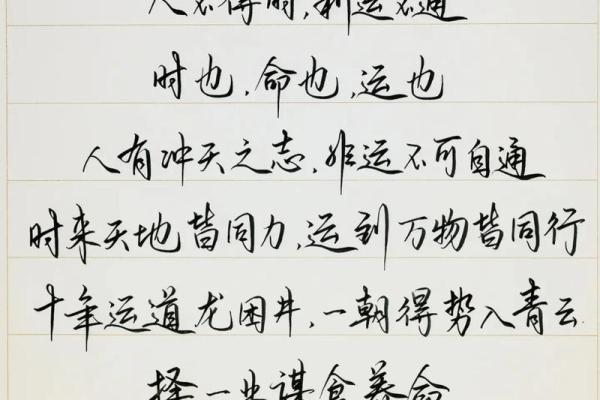 人不得时，利运不通
时也，命也，运也
人有冲天之志，非运不可自通
时来天地皆同力，运到万物皆同行
十年运道龙困井，一朝得势入青云
择一业谋食养命